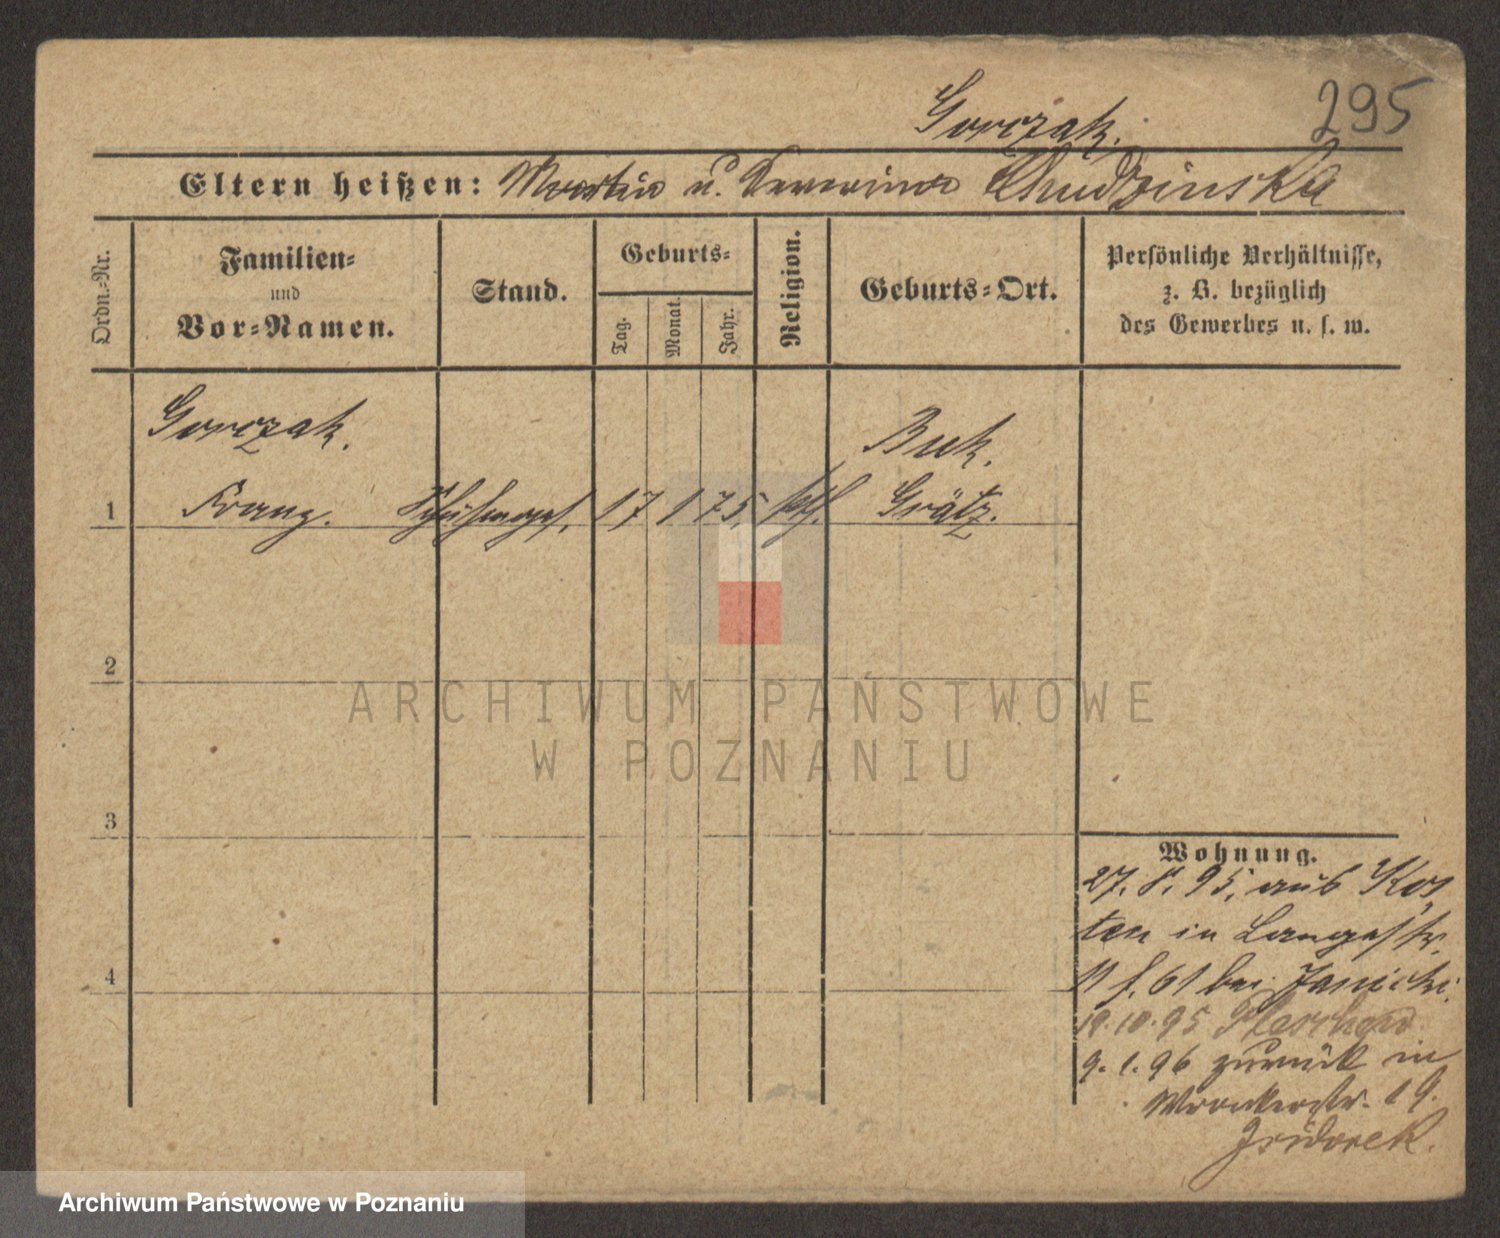 295
Gorczak.
Eltern heißen: Martin u. Severina Chudzinska
Ordn.-Nr.
Familien-
und
Vor-Namen.
Stand.
Geburts-
Tag.
Monat.
Jahr.
Religion.
Geburts-Ort.
Persönliche Verhältnisse,
z. B. bezüglich
des Gewerbes u. s. w.
Gorczak.
Buk.
1 Franz. 17 1 75. kth. Grätz.
2
3
4
Wohnung.
27. 8. 95. aus Kos-
ten in Langestr.
11 f. 61 bei Janicki.
19. 10. 95
9. 1. 96 zurück in
Wronkerstr. 19.
ARCHIWUM PAŃSTWOWE
W POZNANIU
Archiwum Państwowe w Poznaniu